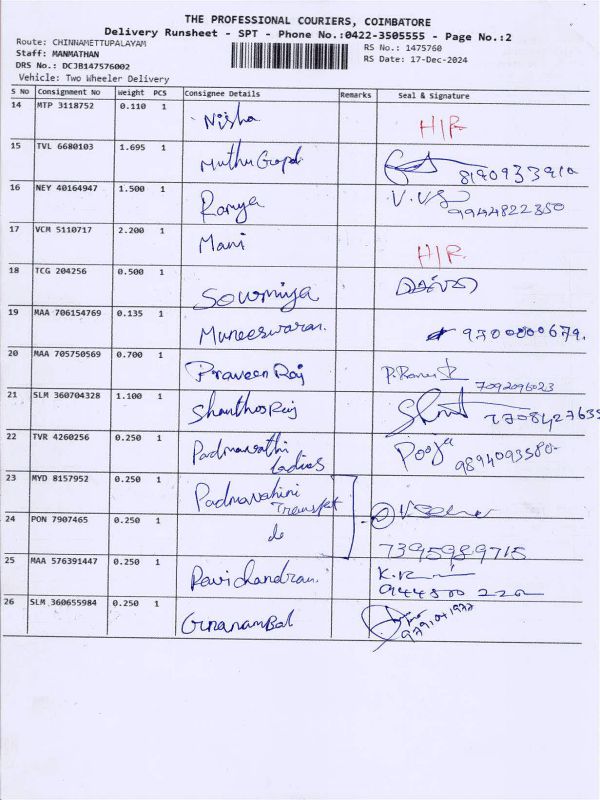 THE PROFESSIONAL COURIERS, COIMBATORE
Delivery Runsheet - SPT - Phone No.:0422-3505555 - Page No.:2
Route: CHINNAMETTUPALAYAM
Staff: MANMATHAN
RS No.: 1475760
DRS No.: DCJB147576002
RS Date: 17-Dec-2024
Vehicle: Two Wheeler Delivery
S No Consignment No Weight PCS Consignee Details Remarks Seal & Signature
14 MTP 3118752 0.110 1 Nisha H/R
15 TVL 6680103 1.695 1 Muthu Gopal 8190933910
16 NEY 40164947 1.500 1 Ramya 9944822350
17 VCM 5110717 2.200 1 Mani H/R
18 TCG 204256 0.500 1 Sowmiya
19 MAA 706154769 0.135 1 Muneeswaran. 9700800679.
20 MAA 705750569 0.700 1 Praveen Raj 7092096023
21 SLM 360704328 1.100 1 Shanthos Raj 7708427635
22 TVR 4260256 0.250 1 Padmavathi Ladies Pooja 9894093580-
23 MYD 8157952 0.250 1 Padmavahini Transpt
24 PON 7907465 0.250 1 do 7395989715
25 MAA 576391447 0.250 1 Ravichandran.
26 SLM 360655984 0.250 1 Gnanambal